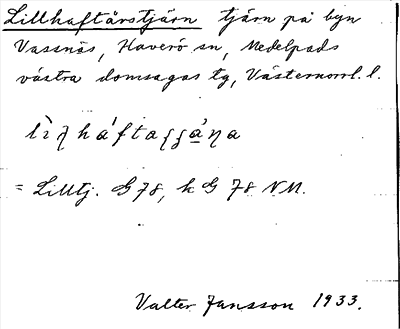 Lillhaftårstjärn tjärn på byn
Vassnäs, Haverö sn, Medelpads
västra domsagas tg, Västernorrl. l.
= Lilltj. G 78, k G 78 NV.
Valter Jansson 1933.